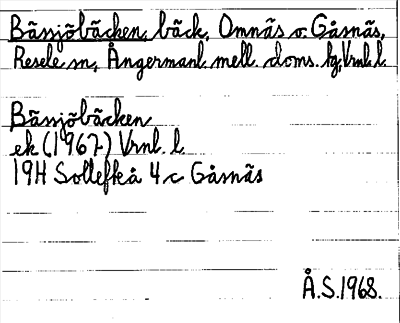 Bässjöbäcken, bäck, Omnäs o. Gåsnäs,
Resele sn, Ångermanl. mell. doms. hg, Vrnl. l.
Bässjöbäcken
ek (1967) Vrnl. l.
19H Sollefteå 4 c Gåsnäs
Å.S. 1968.